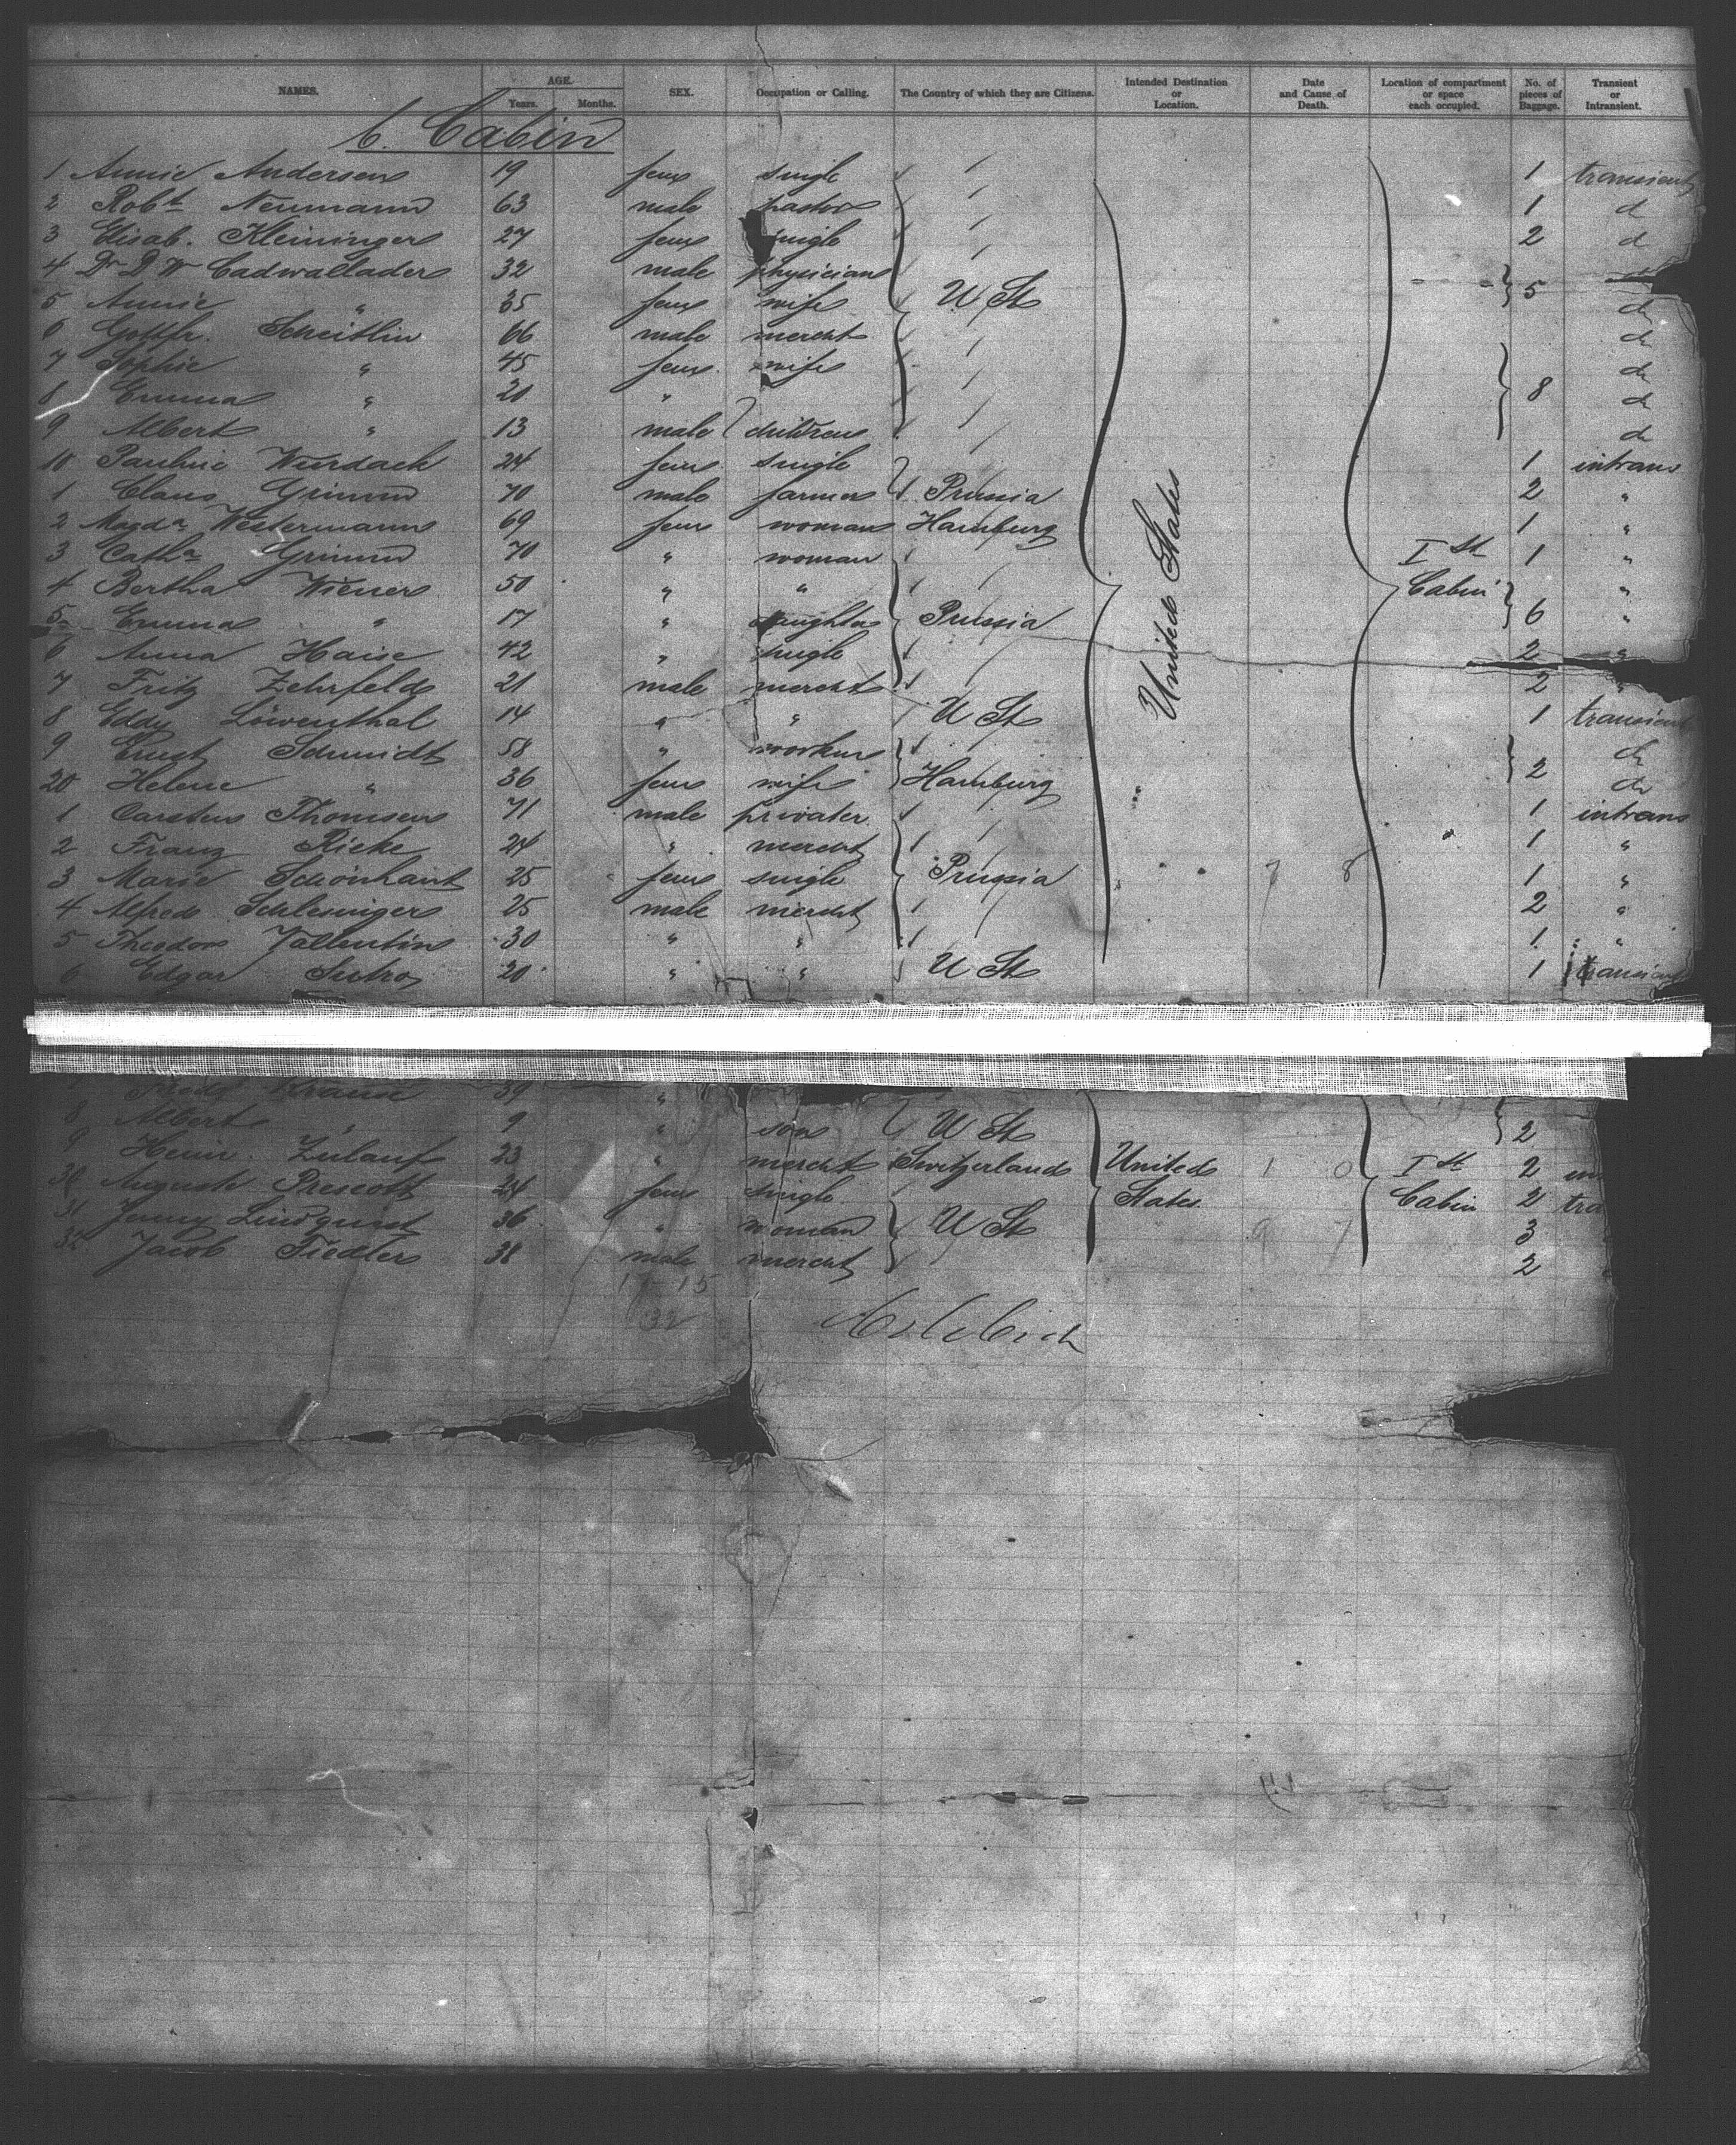 NAMES. AGE. Years. Months. SEX. Occupation or Calling. The Country of which they are Citizens. Intended Destination or Location. Date and Cause of Death. Location of compartment or space each occupied. No. of pieces of Baggage. Transient or Intransient.
Cabin
1 Annie Andersen 19 fem single 1 transient
2 Robt Neumann 63 male pastor 1 d
3 Elisab. Kleininger 27 fem single 2 d
4 Dr D W Cadwallader 32 male physician
5 Annie " 35 fem wife U St 5 do
6 Gottfr. Scheitlin 66 male mercht do
7 Sophie " 45 fem. wife do
8 Emma " 20 " 8 do
9 Albert " 13 male children do
10 Pauline Wurdack 24 fem single 1 intrans
1 Claus Grimm 70 male farmer Prussia 2 "
2 Magda Westermann 69 fem woman Hamburg 1 "
3 Catha Grimm 70 " woman Ist 1 "
4 Bertha Wiener 50 " " Cabin "
5 Emma " 17 " daughter Prussia United States 6 "
6 Anna Haise 42 " single 2 "
7 Fritz Zehrfeld 21 male mercht 2 "
8 Eddy Löwenthal 14 " " U St 1 transient
9 Ernst Schmidt 58 " worker do
20 Helene " 36 fem wife Hamburg 2 do
1 Carsten Thomsen 71 male privater 1 intrans
2 Franz Rieke 24 " mercht 1 "
3 Marie Schönhaut 25 fem single Prussia 7 8 1 "
4 Alfred Schlesinger 25 male mercht 2 "
5 Theodor Vallentin 30 " " 1 "
6 Edgar Sutro 20 " " U St 1 transient
Krause 39 "
8 Albert " 9 " son U St 2
9 Heinr. Zulauf 23 " mercht Switzerland United 1 0 Ist 2 in
30 Auguste Prescott 24 fem single States Cabin 2 tra
31 Jenny Lindquist 36 " woman U St 9 7 3
32 Jacob Fiedler 38 male mercht 2
17-15
32